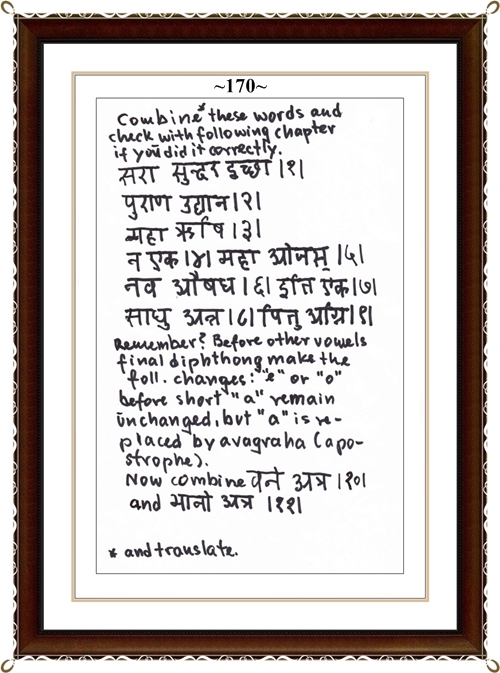 ~170~
Combine* these words and
check with following chapter
if you did it correctly.
सरा सुन्दर इच्छा ।१।
पुराण उद्यान ।२।
महा ऋषि ।३।
न एक ।४। महा ओजस् ।५।
नव औषध ।६। इति एक ।७।
साधु अन्न ।८। ।९।
Remember? Before other vowels
final diphthong make the
foll. changes: "e" or "o"
before short "a" remain
unchanged, but "a" is re-
placed by avagraha (apo-
strophe).
Now combine वने अत्र ।१०।
and भानो अत्र ।११।
* and translate.